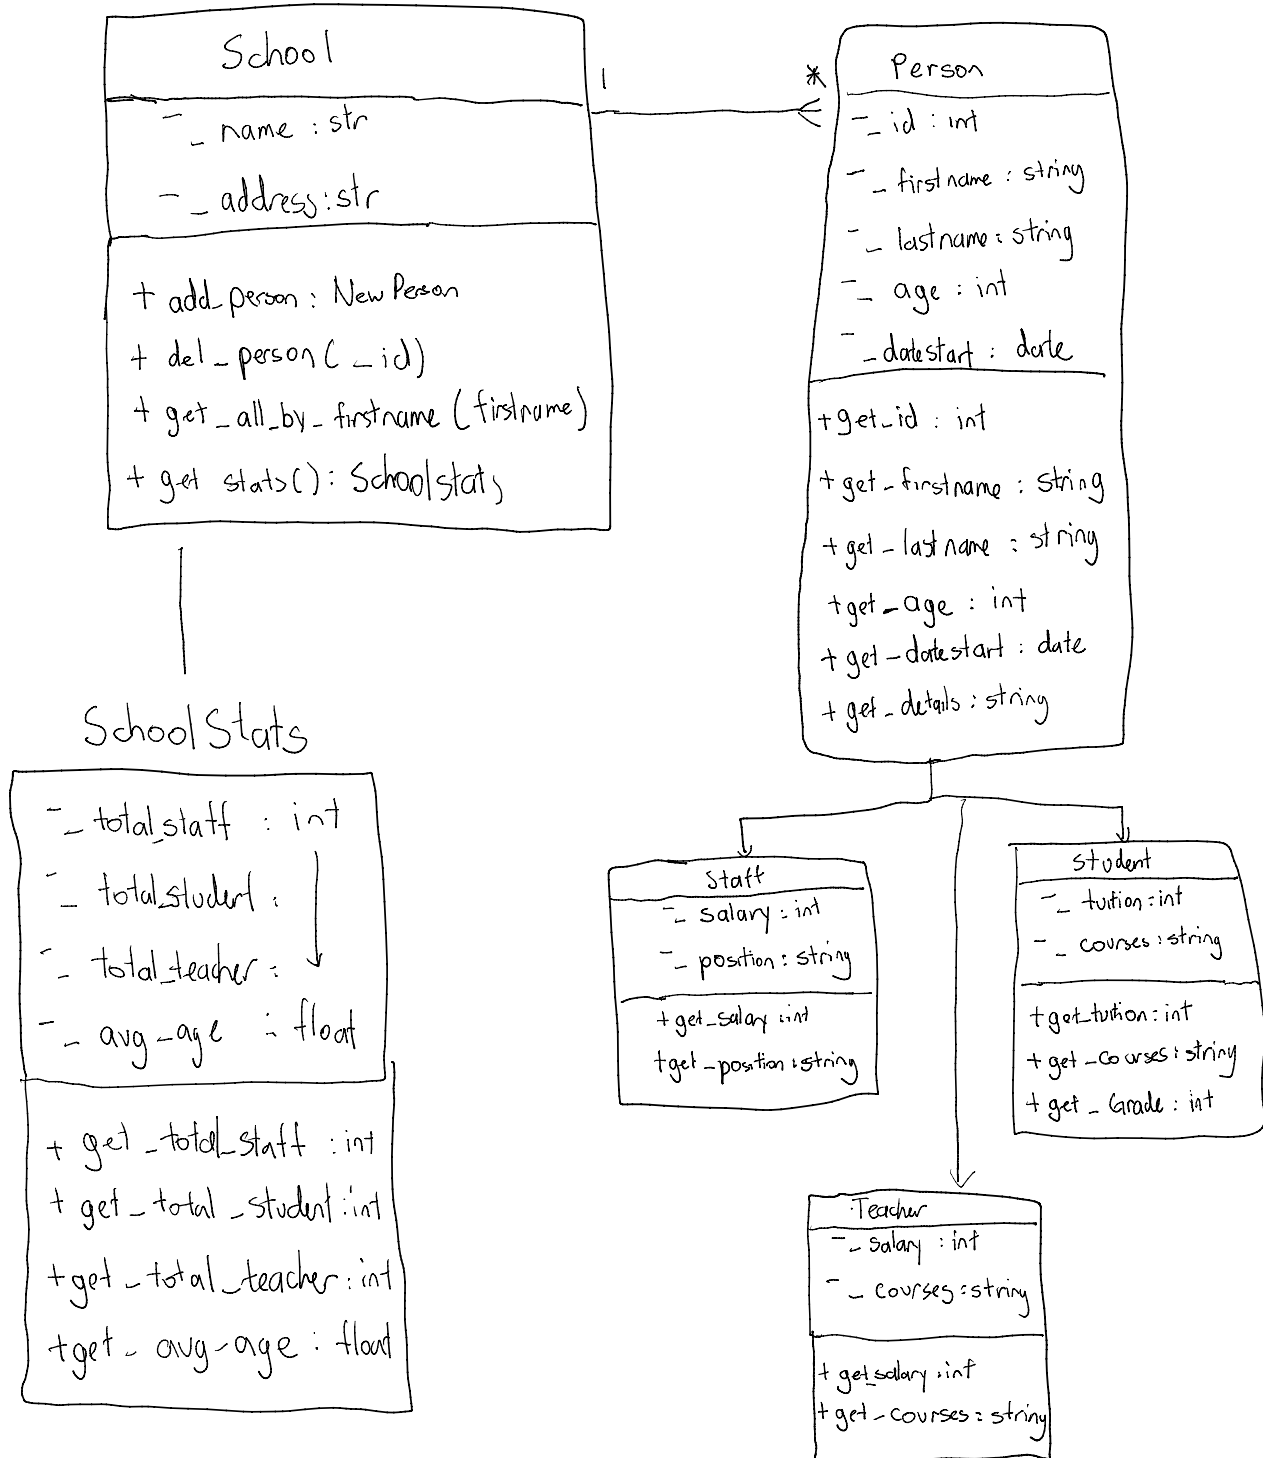 School
- _ name : str
- _ address : str
+ add_person : New Person
+ del_person(_id)
+ get_all_by_firstname (firstname)
+ get stats() : Schoolstats
1
*
Person
- _ id : int
- _ firstname : string
- _ lastname : string
- _ age : int
- _ datestart : date
+ get_id : int
+ get_firstname : string
+ get_lastname : string
+ get_age : int
+ get_datestart : date
+ get_details : string
SchoolStats
- _ total_staff : int
- _ total_student :
- _ total_teacher :
- _ avg_age : float
+ get_total_staff : int
+ get_total_student : int
+ get_total_teacher : int
+ get_avg_age : float
Staff
- _ salary : int
- _ position : string
+ get_salary : int
+ get_position : string
Student
- _ tuition : int
- _ courses : string
+ get_tuition : int
+ get_courses : string
+ get_Grade : int
Teacher
- _ salary : int
- _ courses : string
+ get_salary : int
+ get_courses : string